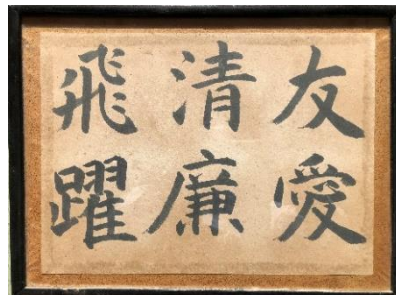 友愛
清廉
飛躍